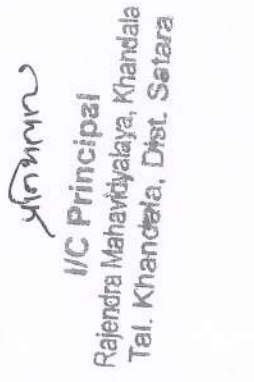 I/C Principal
Rajendra Mahavidyalaya, Khandala
Tal. Khandala, Dist. Satara